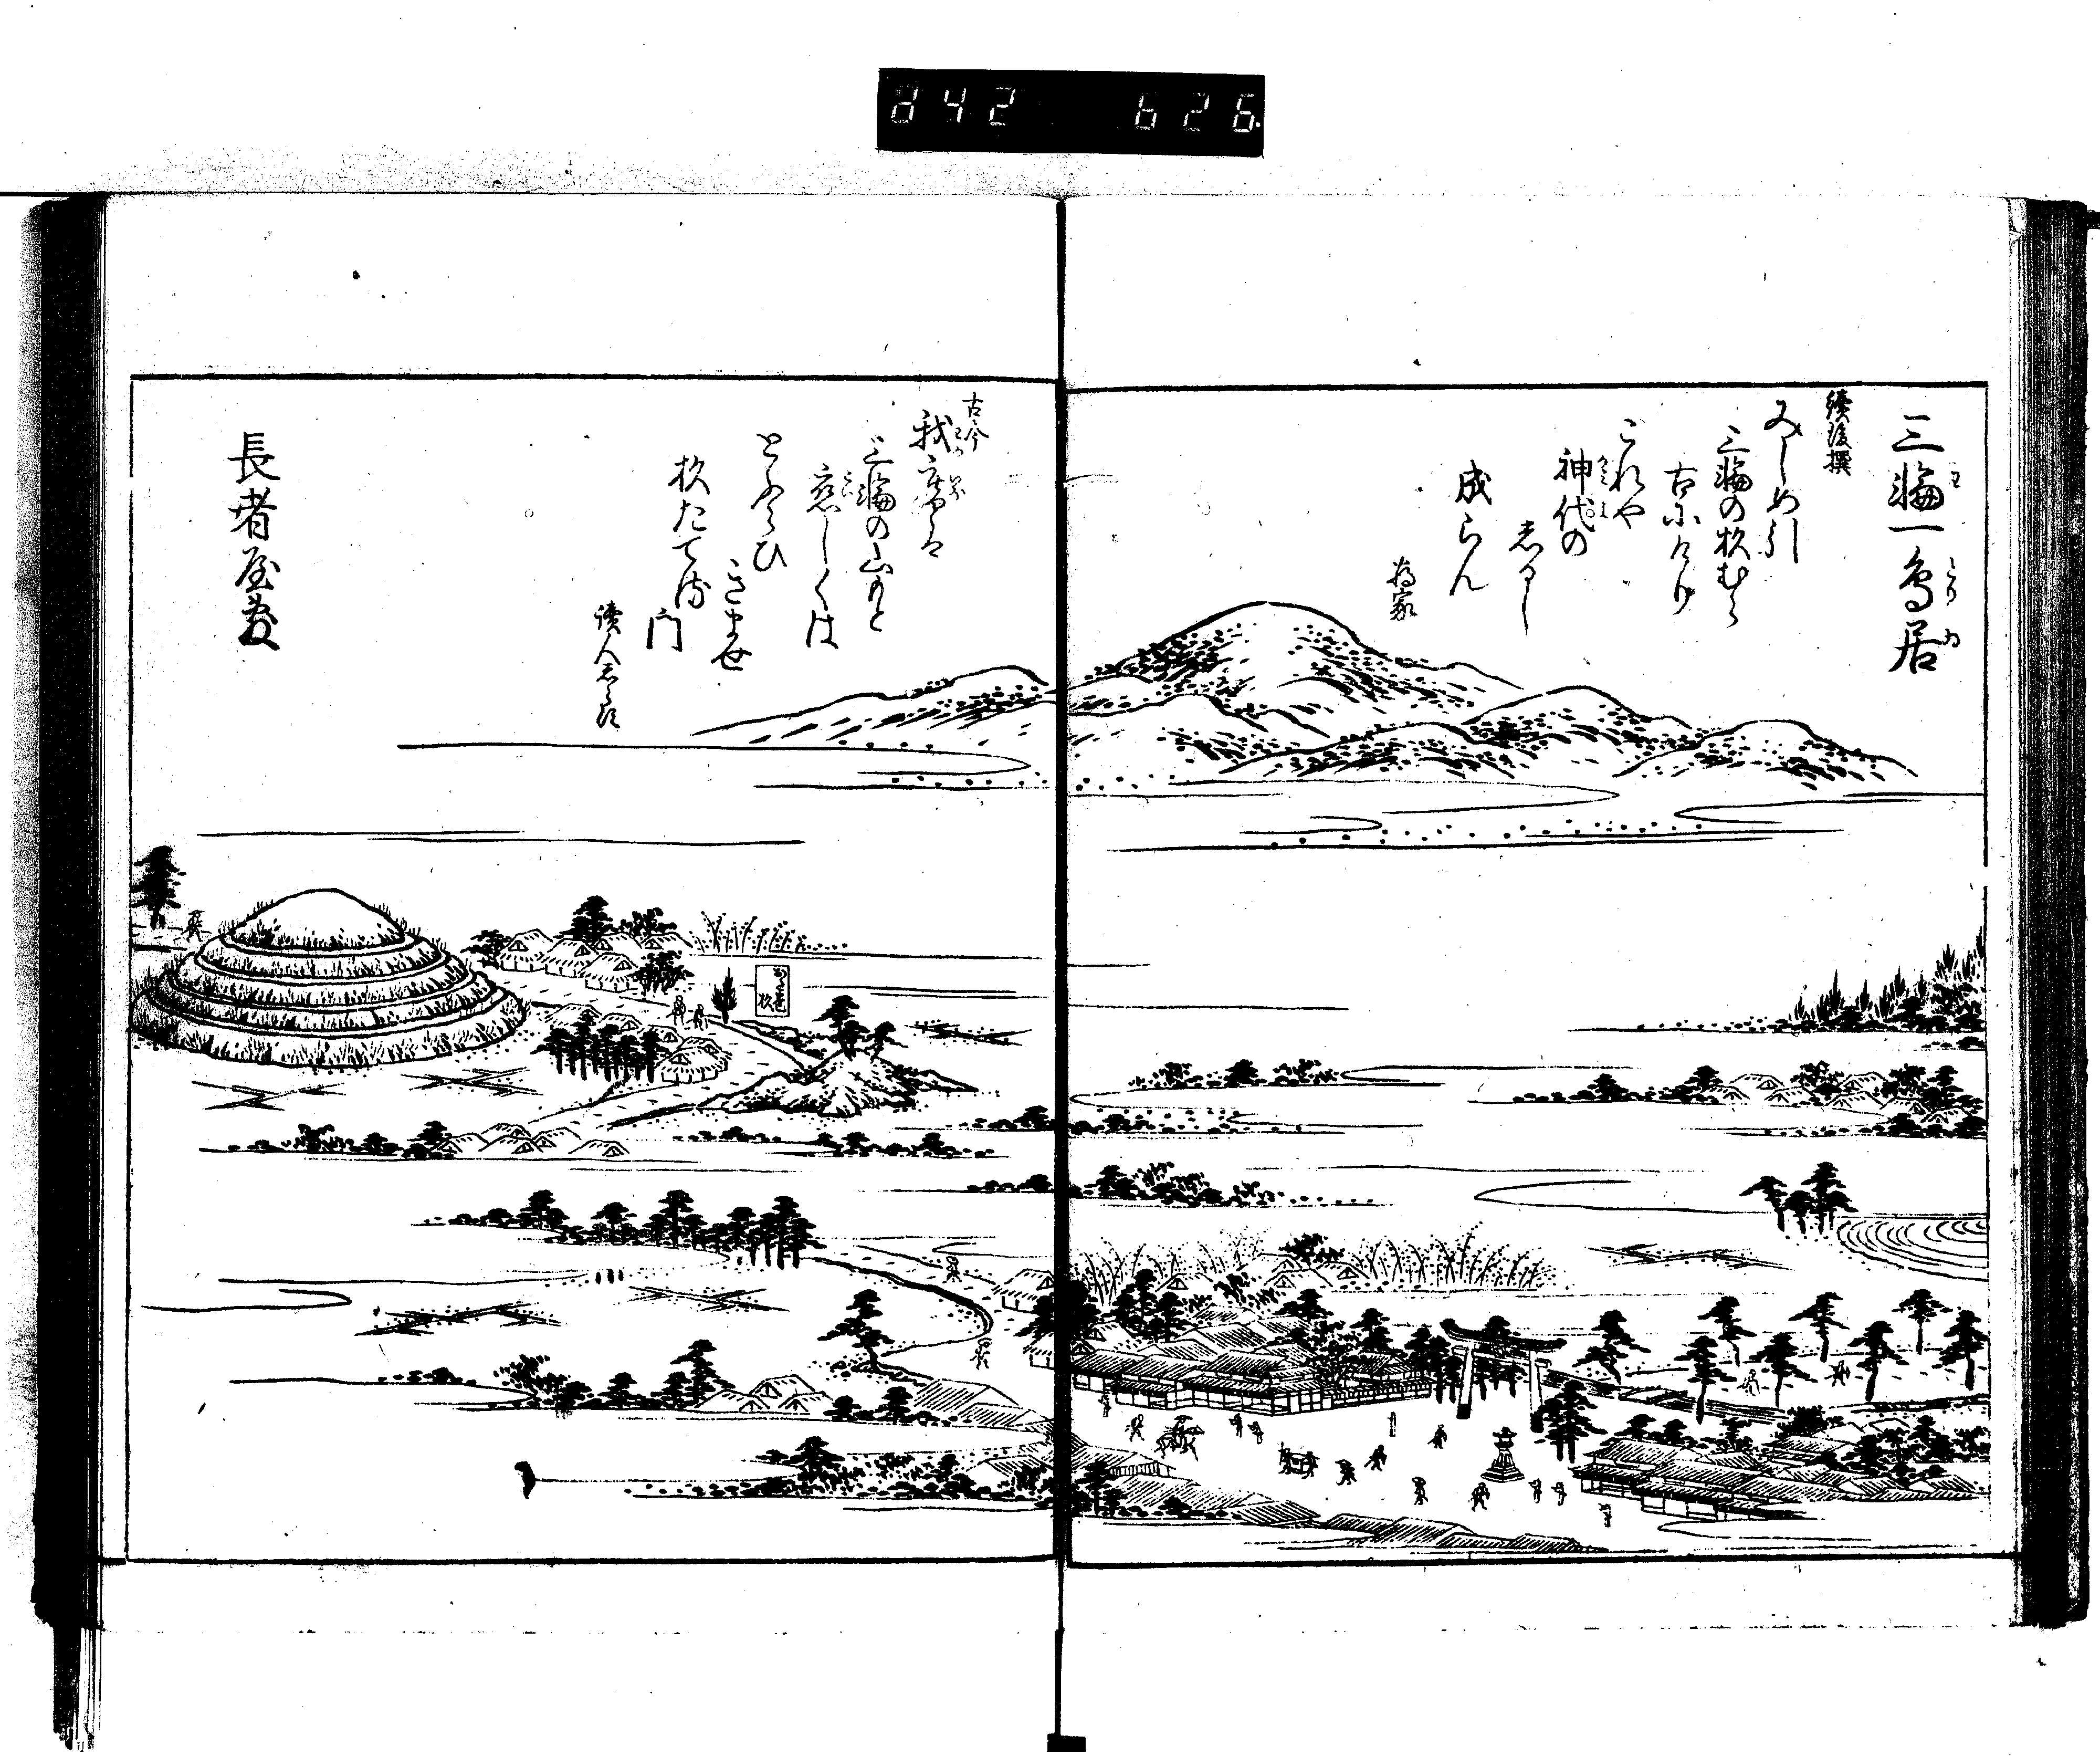 三輪一鳥居
續後撰
みしめ引
三輪の杦むら
古にけり
これや
神代の
しるし
成らん
為家
古今
我庵は
三輪の山もと
恋しくは
とふらひ
きませ
杦たてる
門
讀人しらす
長者屋敷
842 626